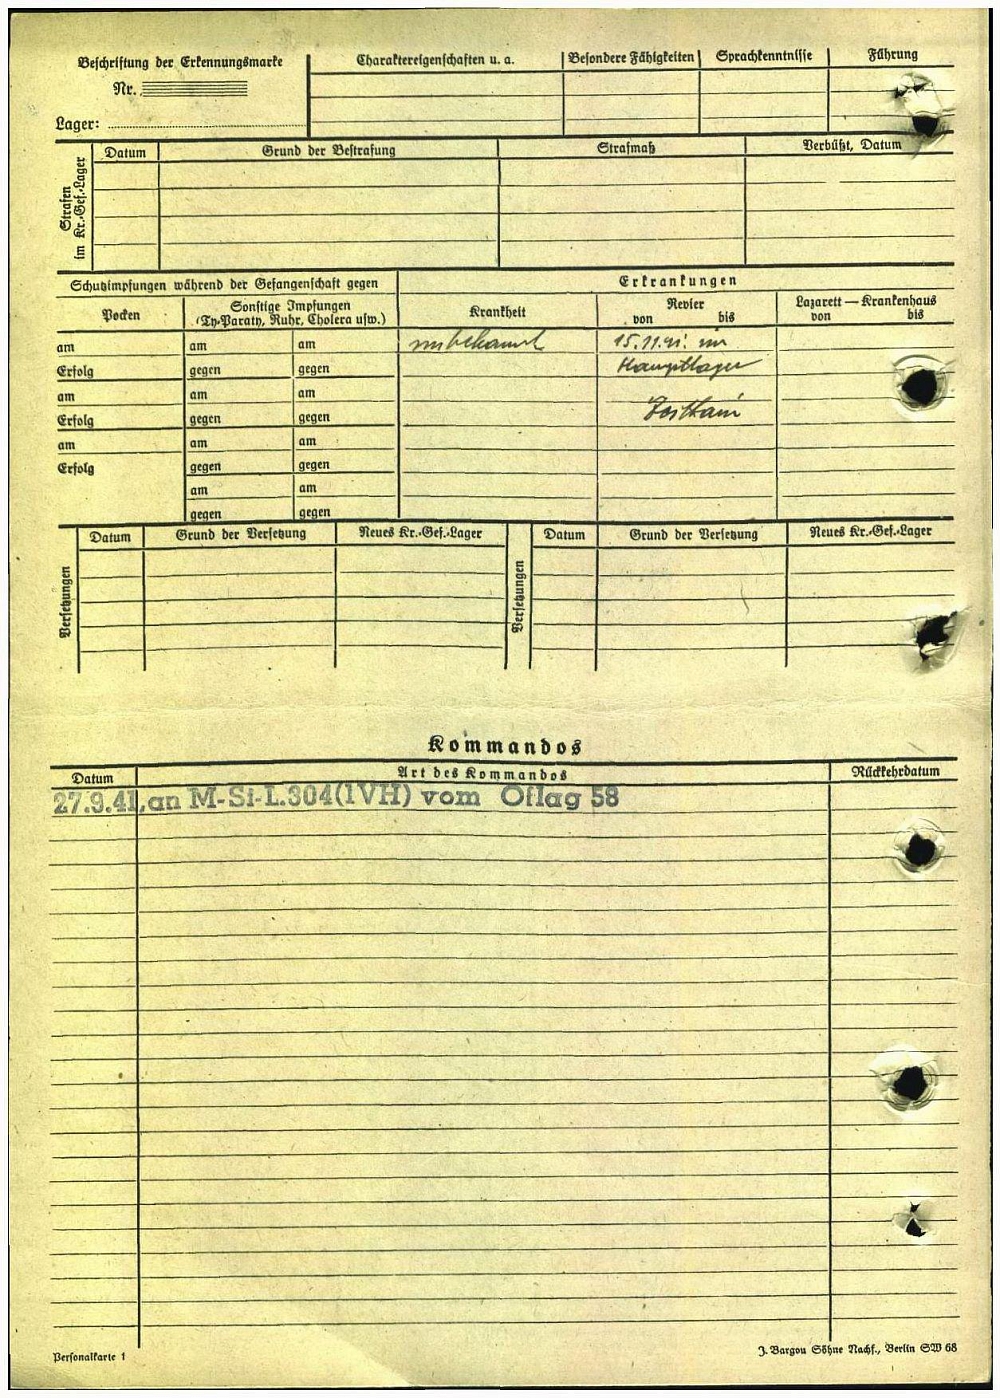 Beschriftung der Erkennungsmarke
Nr.
Lager:
Charaktereigenschaften u. a.
Besondere Fähigkeiten
Sprachkenntnisse
Führung
Strafen im Kr.-Gef.-Lager
Datum
Grund der Bestrafung
Strafmaß
Verbüßt, Datum
Schutzimpfungen während der Gefangenschaft gegen
Erkrankungen
Pocken
Sonstige Impfungen
(Ty-Paraty, Ruhr, Cholera usw.)
Krankheit
Revier
von bis
Lazarett — Krankenhaus
von bis
am am am unbekannt 15.11.41. im
Erfolg gegen gegen Hauptlager
am am am
Erfolg gegen gegen Zeithain
am am am
Erfolg gegen gegen
am am
gegen gegen
Versetzungen
Datum Grund der Versetzung Neues Kr.-Gef.-Lager
Versetzungen
Datum Grund der Versetzung Neues Kr.-Gef.-Lager
Kommandos
Datum Art des Kommandos Rückkehrdatum
27.9.41, an M-Si-L.304(IVH) vom Oflag 58
Personalkarte 1
J. Bargou Söhne Nachf., Berlin SW 68